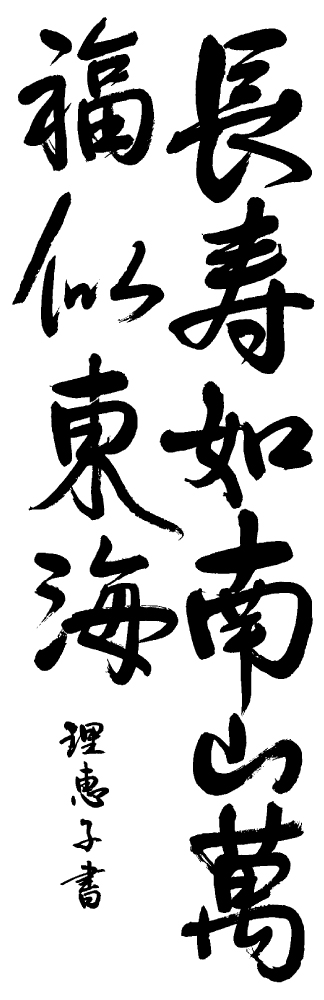 長寿如南山萬
福似東海
理恵子書